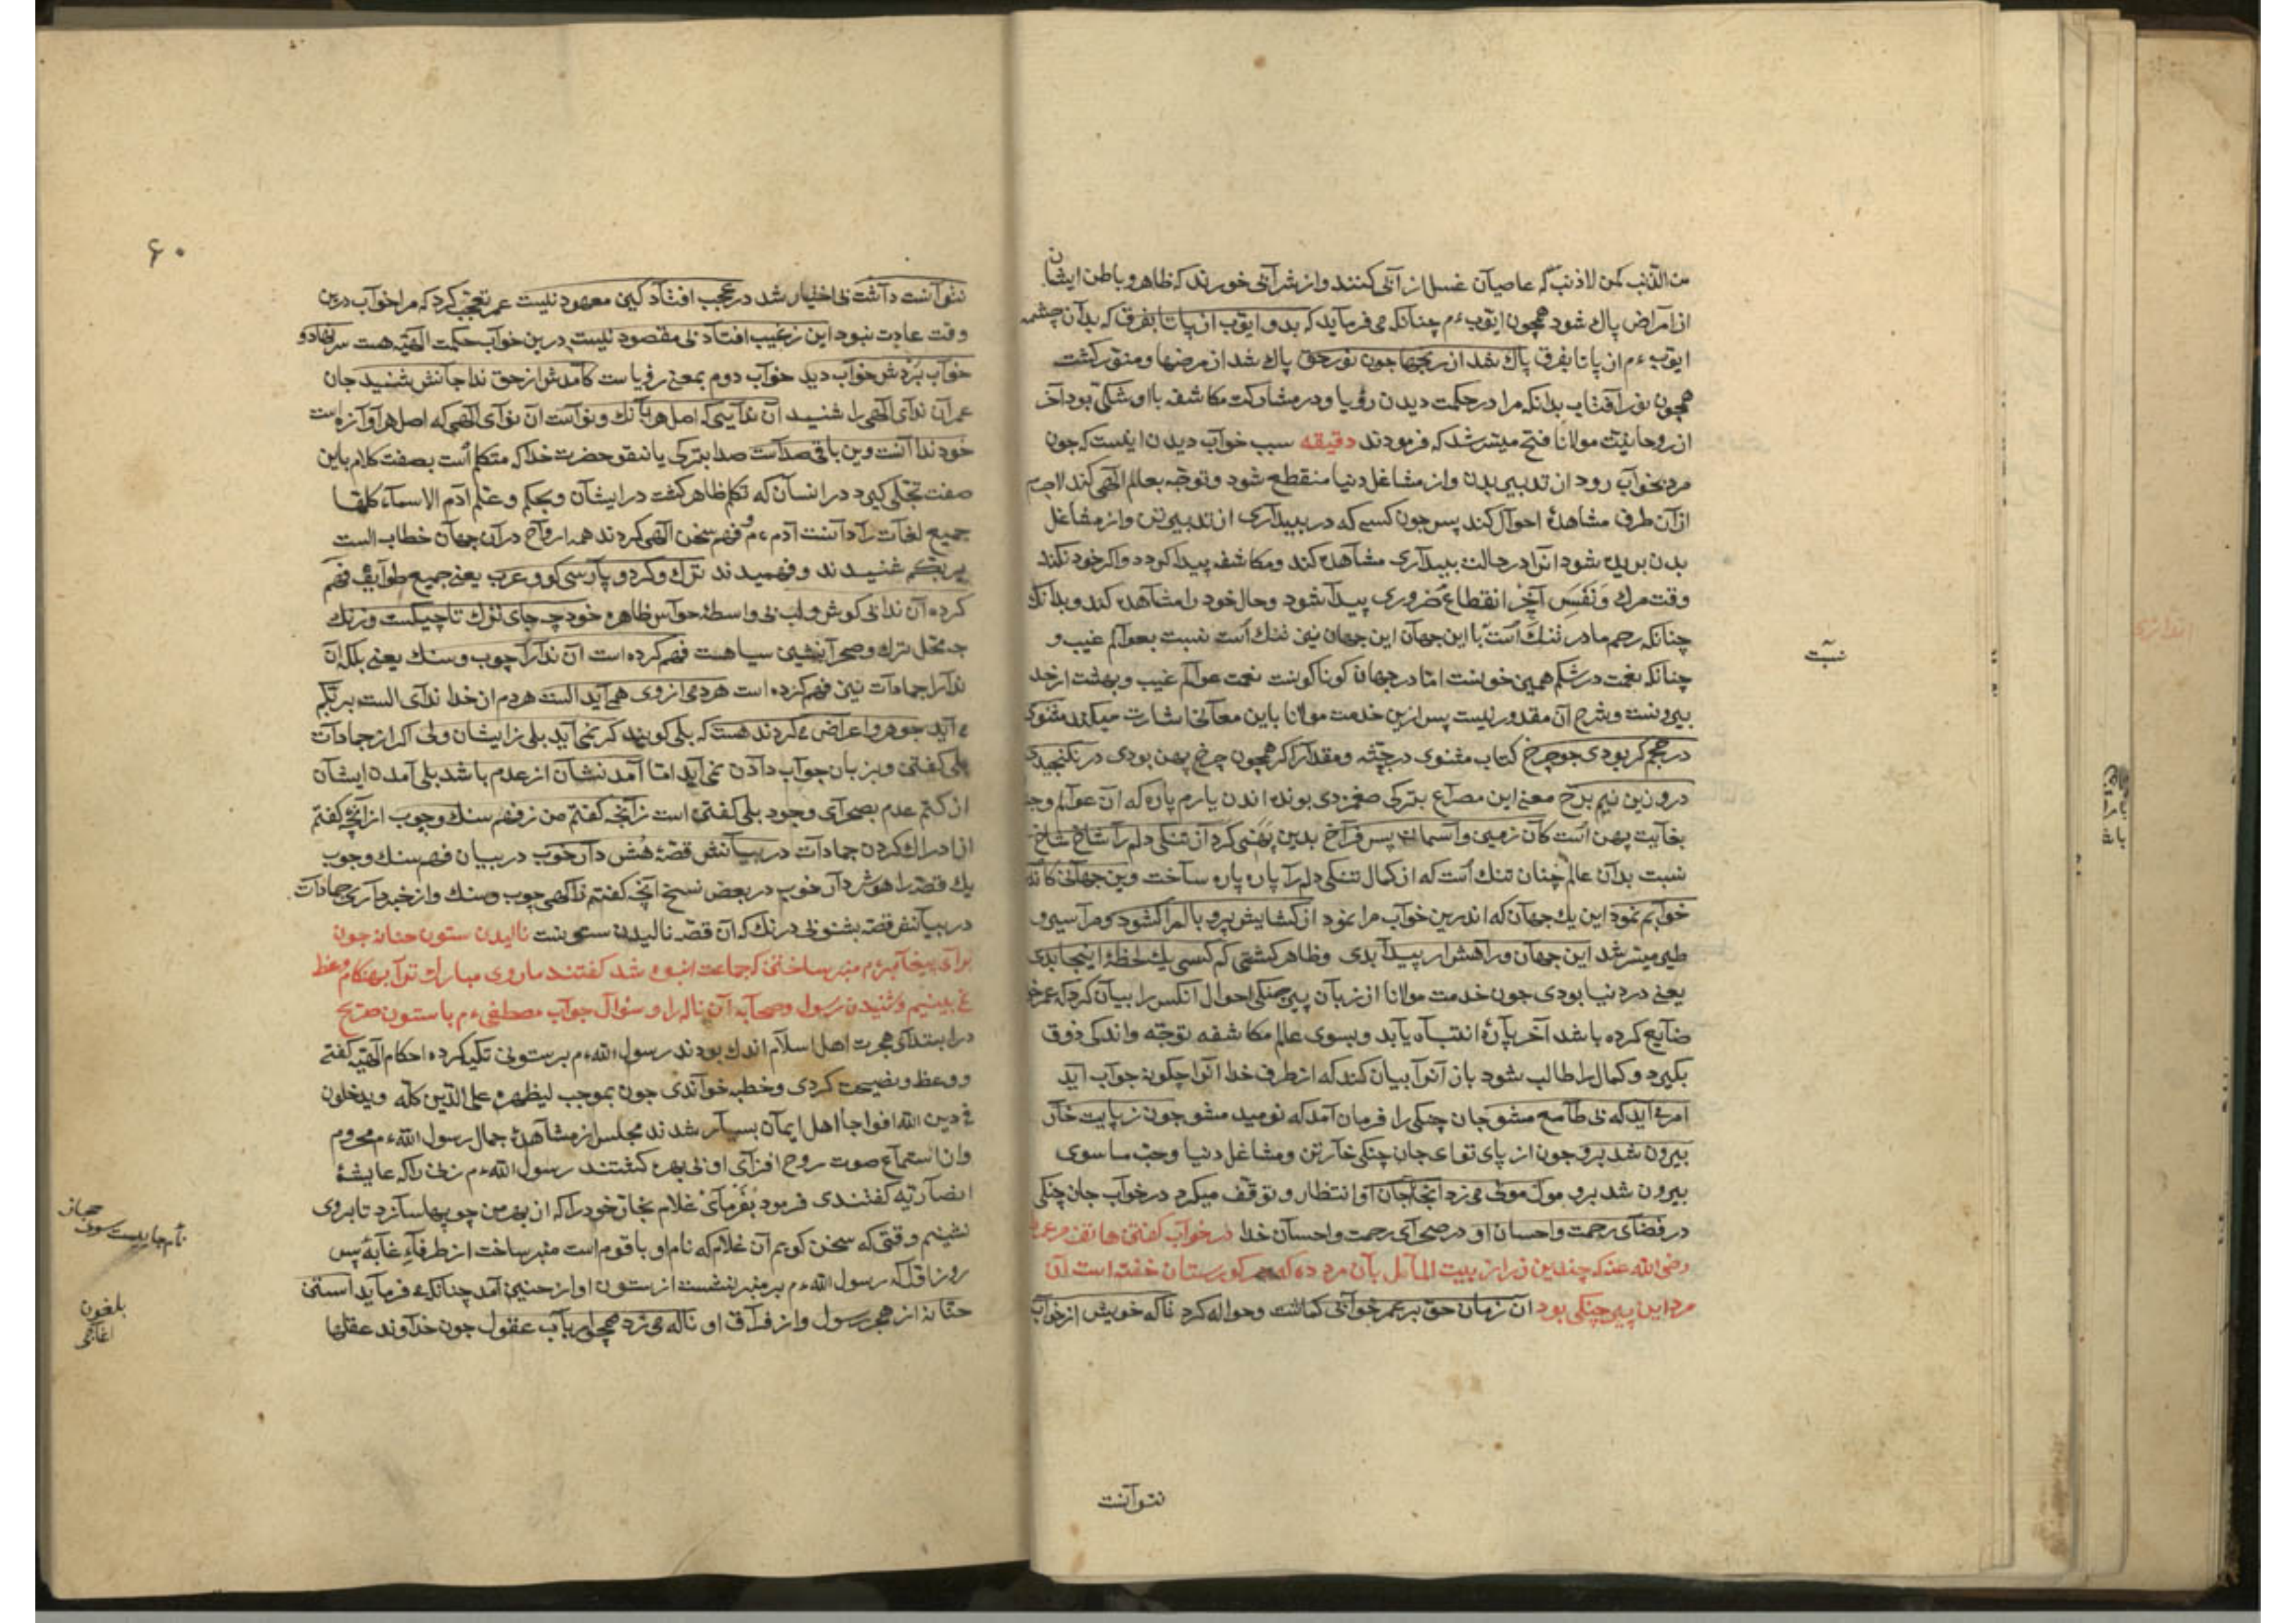 من الذنب کمن لا ذنب که عاصیان غسل از آنی کنند و از شرآنی خورند که ظاهر و باطن ایشان
از امراض پاک شود همچون ایّوب ءم چنانکه می فرماید که بدو ایوب از پا تا بفرق که بدان چشمه
ایوب ءم از پا تا بفرق پاک شد از رنجها چون نور حق پاک شد از مرضها و منوّر کشت
همچون نور آفتاب بدانکه مرا در حکمت دیدن رؤیا و در مشارکت مکاشفه با او شکی بود آخر
از روحانیّت مولانا فتح میسّر شد که فرمودند دقیقه سبب خواب دیدن اینست که جون
مرد بخواب رود از تدبیر بدن و از مشاغل دنیا منقطع شود و توجّه بعالم الٓهی کند لاجرم
از آن طرف مشاهدۀ احوال کند پس جون کسی که در بیداری از تدبیر تن و از مشاغل
بدن بریده شود انرا در حالت بیداری مشاهده کند و مکاشفه پیدا کردد واکر خود نکند
وقت مرک و نَفَسِ آخِر انقطاع ضروری پیدا شود و حال خود را مشاهده کند و بدانک
چنانکه رحم مادر تنک است با این جهان این جهان نیز تنک است نسبت بعوالم غیب و
چنانکه نعمت در شکم همین خونست امّا در جهان کوناکونست نعمت عوالم غیب و بهشت از حد
بیرونست و شرح آن مقدور نیست پس ازین خدمت مولانا باین معانی اشارت میکند مثنوی
در حجم کر بودی جو چرخ کتاب مثنوی در جثّه و مقدار اکر همچون چرخ پهن بودی در نکنجیدی
درو زین نیم برخ معنی این مصراع بترکی صغمزدی بونده اندن یارم پاره که آن عوالم وجـ
بغایت پهن است کان زمین و آسمان پس فراخ بدین پَهْنی کرد از تنکی دلم را شاخ شاخ
نسبت بدان عالم چنان تنک است که از کمال تنکی دلم را پاره پاره ساخت وین جهانی کاند
خوابم نمود این یک جهان که اندرین خواب مرا نمود از کشایش پر و بالم را کشود و مرا سیر و
طیر میسّر شد این جهان و راهش ار پیدا بدی و ظاهر کشتی کم کسی یک لحظۀ اینجا بدی
یعنی در دنیا بودی جون خدمت مولانا از زبان پیر چنکی احوال انکس را بیان کرد که عمر خو
ضایع کرده باشد آخر پارۀ انتباه یابد و بسوی عالم مکاشفه توجّه و اندکی ذوق
بکیرد و کمال را طالب شود باز آنرا بیان کند که از طرف خدا انرا چکونه جواب آید
امر می آید که نی طامع مشو جان چنکی را فرمان آمد که نومید مشو جون ز پایت خار
بیرون شد برو جون از پای تو ای جان چنکی خار تن و مشاغل دنیا و حبّ ما سوی
بیرون شد برو مول مولی می زد انجا جان او انتظار و توقّف میکرد در خواب جان چنکی
در فضای رحمت و احسان او در صحرای رحمت و احسان خدا در خواب کفتن هاتف مر عمر
رضی الله عنه که چندین زر از بیت المال بآن مرد ده که در کورستان خفته است آن
مرد این پیر چنکی بود آن زمان حق بر عمر خوابی کماشت و حواله کرد تا که خویش از خواب
نتوانست
نسبت
۶۰
نتوانست داشت بی اختیار شد در عجب افتاد کین معهود نیست عمر تعجّب کرد که مرا خواب درین
وقت عادت نبود این ز غیب افتاد بی مقصود نیست درین خواب حکمت الٓهیّه هست سر نهاد و
خواب بُرْدش خواب دید خواب دوم بمعنی رؤیاست کامدش از حق ندا جانش شنید جان
عمر آن ندای الٓهی را شنید آن ندایی که اصل هر بانک و نواست آن نوای الٓهی که اصل هر آوازه است
خود ندا آنست وین باقی صداست صدا بترکی یانقو حضرت خدا که متکلّم است بصفت کلام باین
صفت تجلّی کرد در انسان که تکلّم ظاهر کشت در ایشان و بحکم و علّم آدم الاسماء کلّها
جمیع لغات را دانست آدم ءم و فهم سخن الٓهی کردند همه ارواح در آن جهان خطاب الست
بربّکم شنیدند و فهمیدند ترک و کرد و پارسی کو و عرب یعنی جمیع طوایف فهم
کرده آن ندا بی کوش و لب بی واسطۀ حواس ظاهره خود چه جای ترک تاجیکست و زنک
چه محلّ ترک و صحرانشین سیاهست فهم کرده است آن ندا را چوب و سنک یعنی بلکه آن
ندا را جمادات نیز فهم کرده است هر دمی از وی همی آید الست هر دم از خدا ندای الست بربّکم
می آید جوهر و اعراض می کردند هست که بلی کویند کر نمی آید بلی زایشان ولی اکر از جمادات
بلی کفتن و بزبان جواب دادن نمی آید امّا آمدنشان از عدم باشد بلی آمدن ایشان
از کتم عدم بصحرای وجود بلی کفتن است ز انچه کفتم من ز فهم سنک و چوب از انچه کفتم
از ادراک کردن جمادات در بیانش قصّۀ هُش دار خوب در بیان فهم سنک و چوب
یک قصّه را هوش دار خوب در بعض نسخ آنچه کفتم ز آکهی چوب و سنک و از خبرداری جمادات
در بیانش قصّه بشنو بی درنک که آن قصّه نالیدن ستونست نالیدن ستون حنانه جون
برای پیغامبر ءم منبر ساختن که جماعت انبوه شد کفتند ما روی مبارک تو را بهنکام وعظ
نمی بینیم و شنیدن رسول و صحابه آن ناله را و سؤال جواب مصطفی ءم با ستون صریح
در ابتدای هجرت اهل اسلام اندک بودند رسول الله ءم بر ستونی تکیه کرده احکام الٓهیّه کفتی
و وعظ و نصیحت کردی و خطبه خواندی جون بموجب لیظهره علی الدّین کلّه و یدخلون
فی دین الله افواجا اهل ایمان بسیار شدند مجلس از مشاهدۀ جمال رسول الله ءم محروم
و از استماع صوت روح افزای او بی بهره کشتند رسول الله ءم زنی را که عایشۀ
انصاریّه کفتندی فرمود بفرمای غلام نجّار خود را که از بهر من چوبها سازد تا بر وی
نشینم وقتی که سخن کویم آن غلام که نام او باقوم است منبر ساخت از طرفاءِ غابه پس
روز اوّل که رسول الله ءم بر منبر نشست از ستون اواز حنین آمد چنانکه می فرماید استن
حنّانه از هجر رسول و از فراق او ناله می زد همچو ارباب عقول جون خداوند عقلها
حجاز
نام جاییست سوی
بلغون
اغاجی